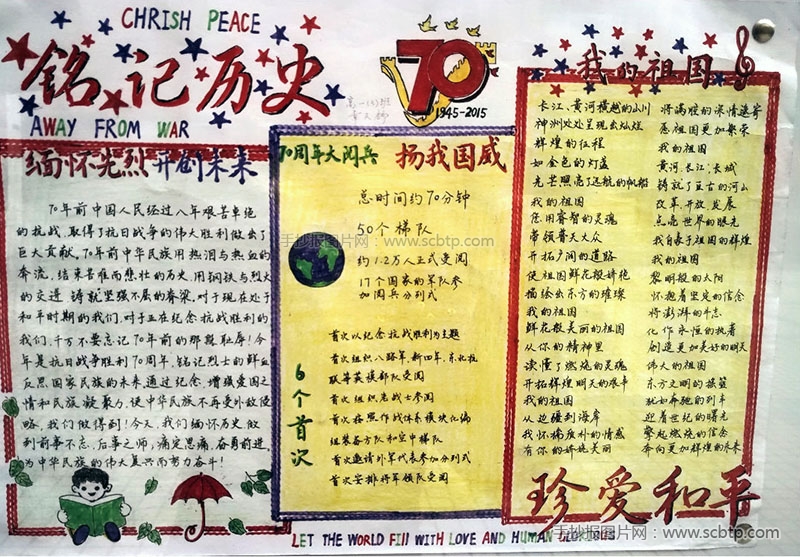 CHRISH PEACE
铭记历史
AWAY FROM WAR
70
1945-2015
缅怀先烈 开创未来
70年前中国人民经过八年艰苦卓绝
的抗战,取得了抗日战争的伟大胜利做出了
巨大贡献。70年前中华民族用热泪与热血的
奔流,结束苦难而悲壮的历史,用钢铁与烈火
的交迸 铸就坚强不屈的脊梁,对于现在处于
和平时期的我们,对于正在纪念抗战胜利的
我们,千万不要忘记70年前的那段耻辱!今
年是抗日战争胜利70周年,铭记烈士的鲜血
反思国家民族的未来通过纪念,增强爱国之
情和民族凝聚力,使中华民族不再受外敌侵
略,我们做得到!今天,我们缅怀历史做
到前事不忘,后事之师,痛定思痛,奋勇前进,
为中华民族的伟大复兴而努力奋斗!
70周年大阅兵 扬我国威
总时间约70分钟
50个梯队
约1.2万人正式受阅
17个国家的军队参
加阅兵分列式
6个首次
首次以纪念抗战胜利为主题
首次组织八路军,新四军,东北抗
联等英模部队受阅
首次组织老战士参阅
首次按照作战体系模块化编
组装备方队和空中梯队
首次邀请外军代表参加分列式
首次安排将军领队受阅
我的祖国
长江、黄河横越的山川
神洲处处呈现出灿烂
辉煌的征程
如金色的灯盏
光芒照亮了远航的帆船
我的祖国
您用睿智的灵魂
带领普天大众
开拓广阔的道路
使祖国鲜花般绽艳
描绘出东方的璀璨
我的祖国
鲜花般美丽的祖国
从你的精神里
读懂了燃烧的灵魂
开拓辉煌明天的艰辛
我的祖国
从边疆到海岸
我怀揣质朴的情感
有你的娇艳美丽
将满腔的深情递寄
愿祖国更加繁荣
我的祖国
黄河、长江、长城
铸就了亘古的河山
改革开放发展
点亮世界的曙光
我自豪于祖国的辉煌
我的祖国
黎明般的太阳
怀抱着坚定的信念
将澎湃的斗志
化作永恒的执着
创造更加美好的明天
伟大的祖国
东方文明的摇篮
犹如奔驰的列车
迎着世纪的曙光
擎起燃烧的信念
奔向更加辉煌的未来
珍爱和平
LET THE WORLD FILL WITH LOVE AND HUMAN
手抄报图片网:www.scbtp.com
手抄报图片网:www.scbtp.com